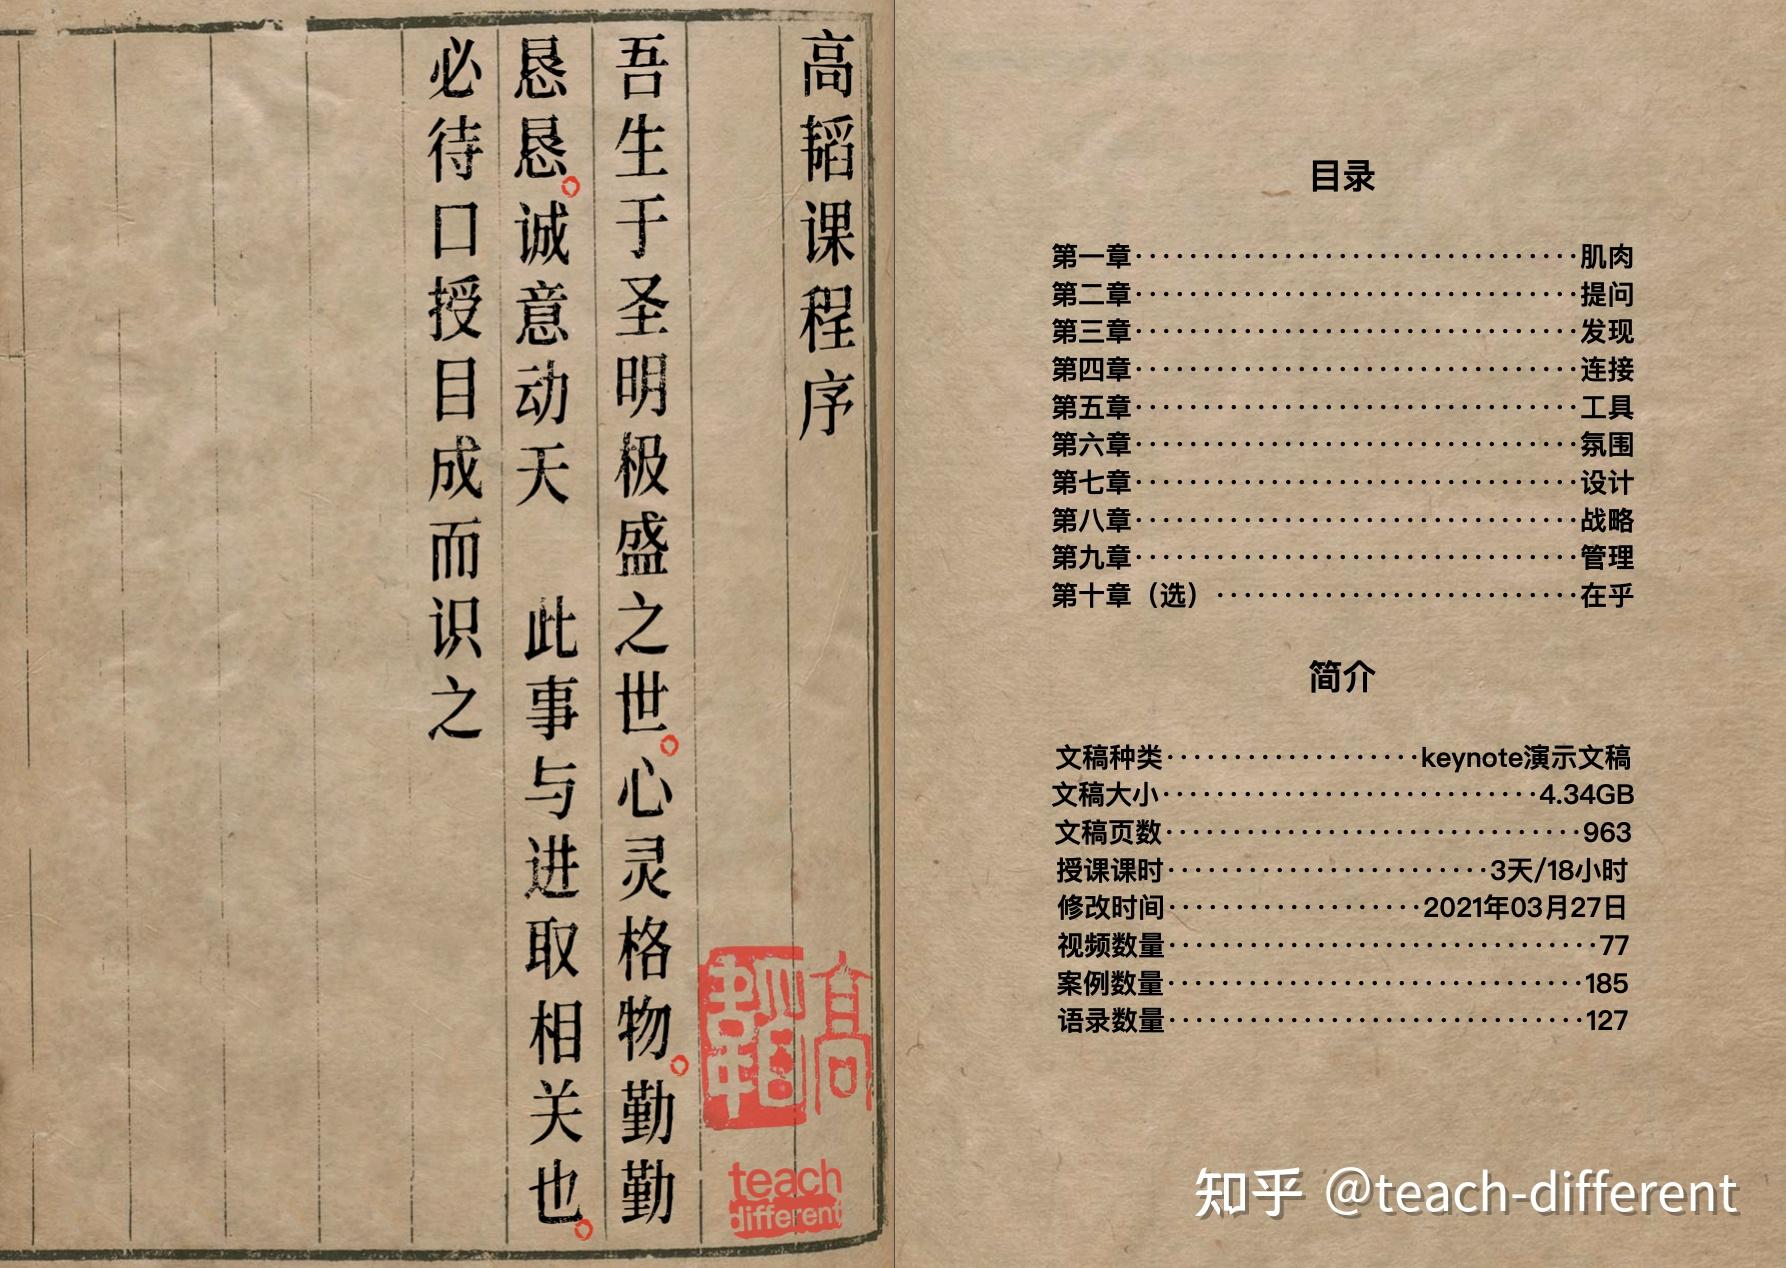 高韬课程序
吾生于圣明极盛之世。心灵格物。勤勤
恳恳。诚意动天 此事与进取相关也。
必待口授目成而识之
高韬
teach
different
目录
第一章·································肌肉
第二章·································提问
第三章·································发现
第四章·································连接
第五章·································工具
第六章·································氛围
第七章·································设计
第八章·································战略
第九章·································管理
第十章（选）···························在乎
简介
文稿种类···················keynote演示文稿
文稿大小····························4.34GB
文稿页数·······························963
授课课时························3天/18小时
修改时间···················2021年03月27日
视频数量································77
案例数量·······························185
语录数量·······························127
知乎 @teach-different